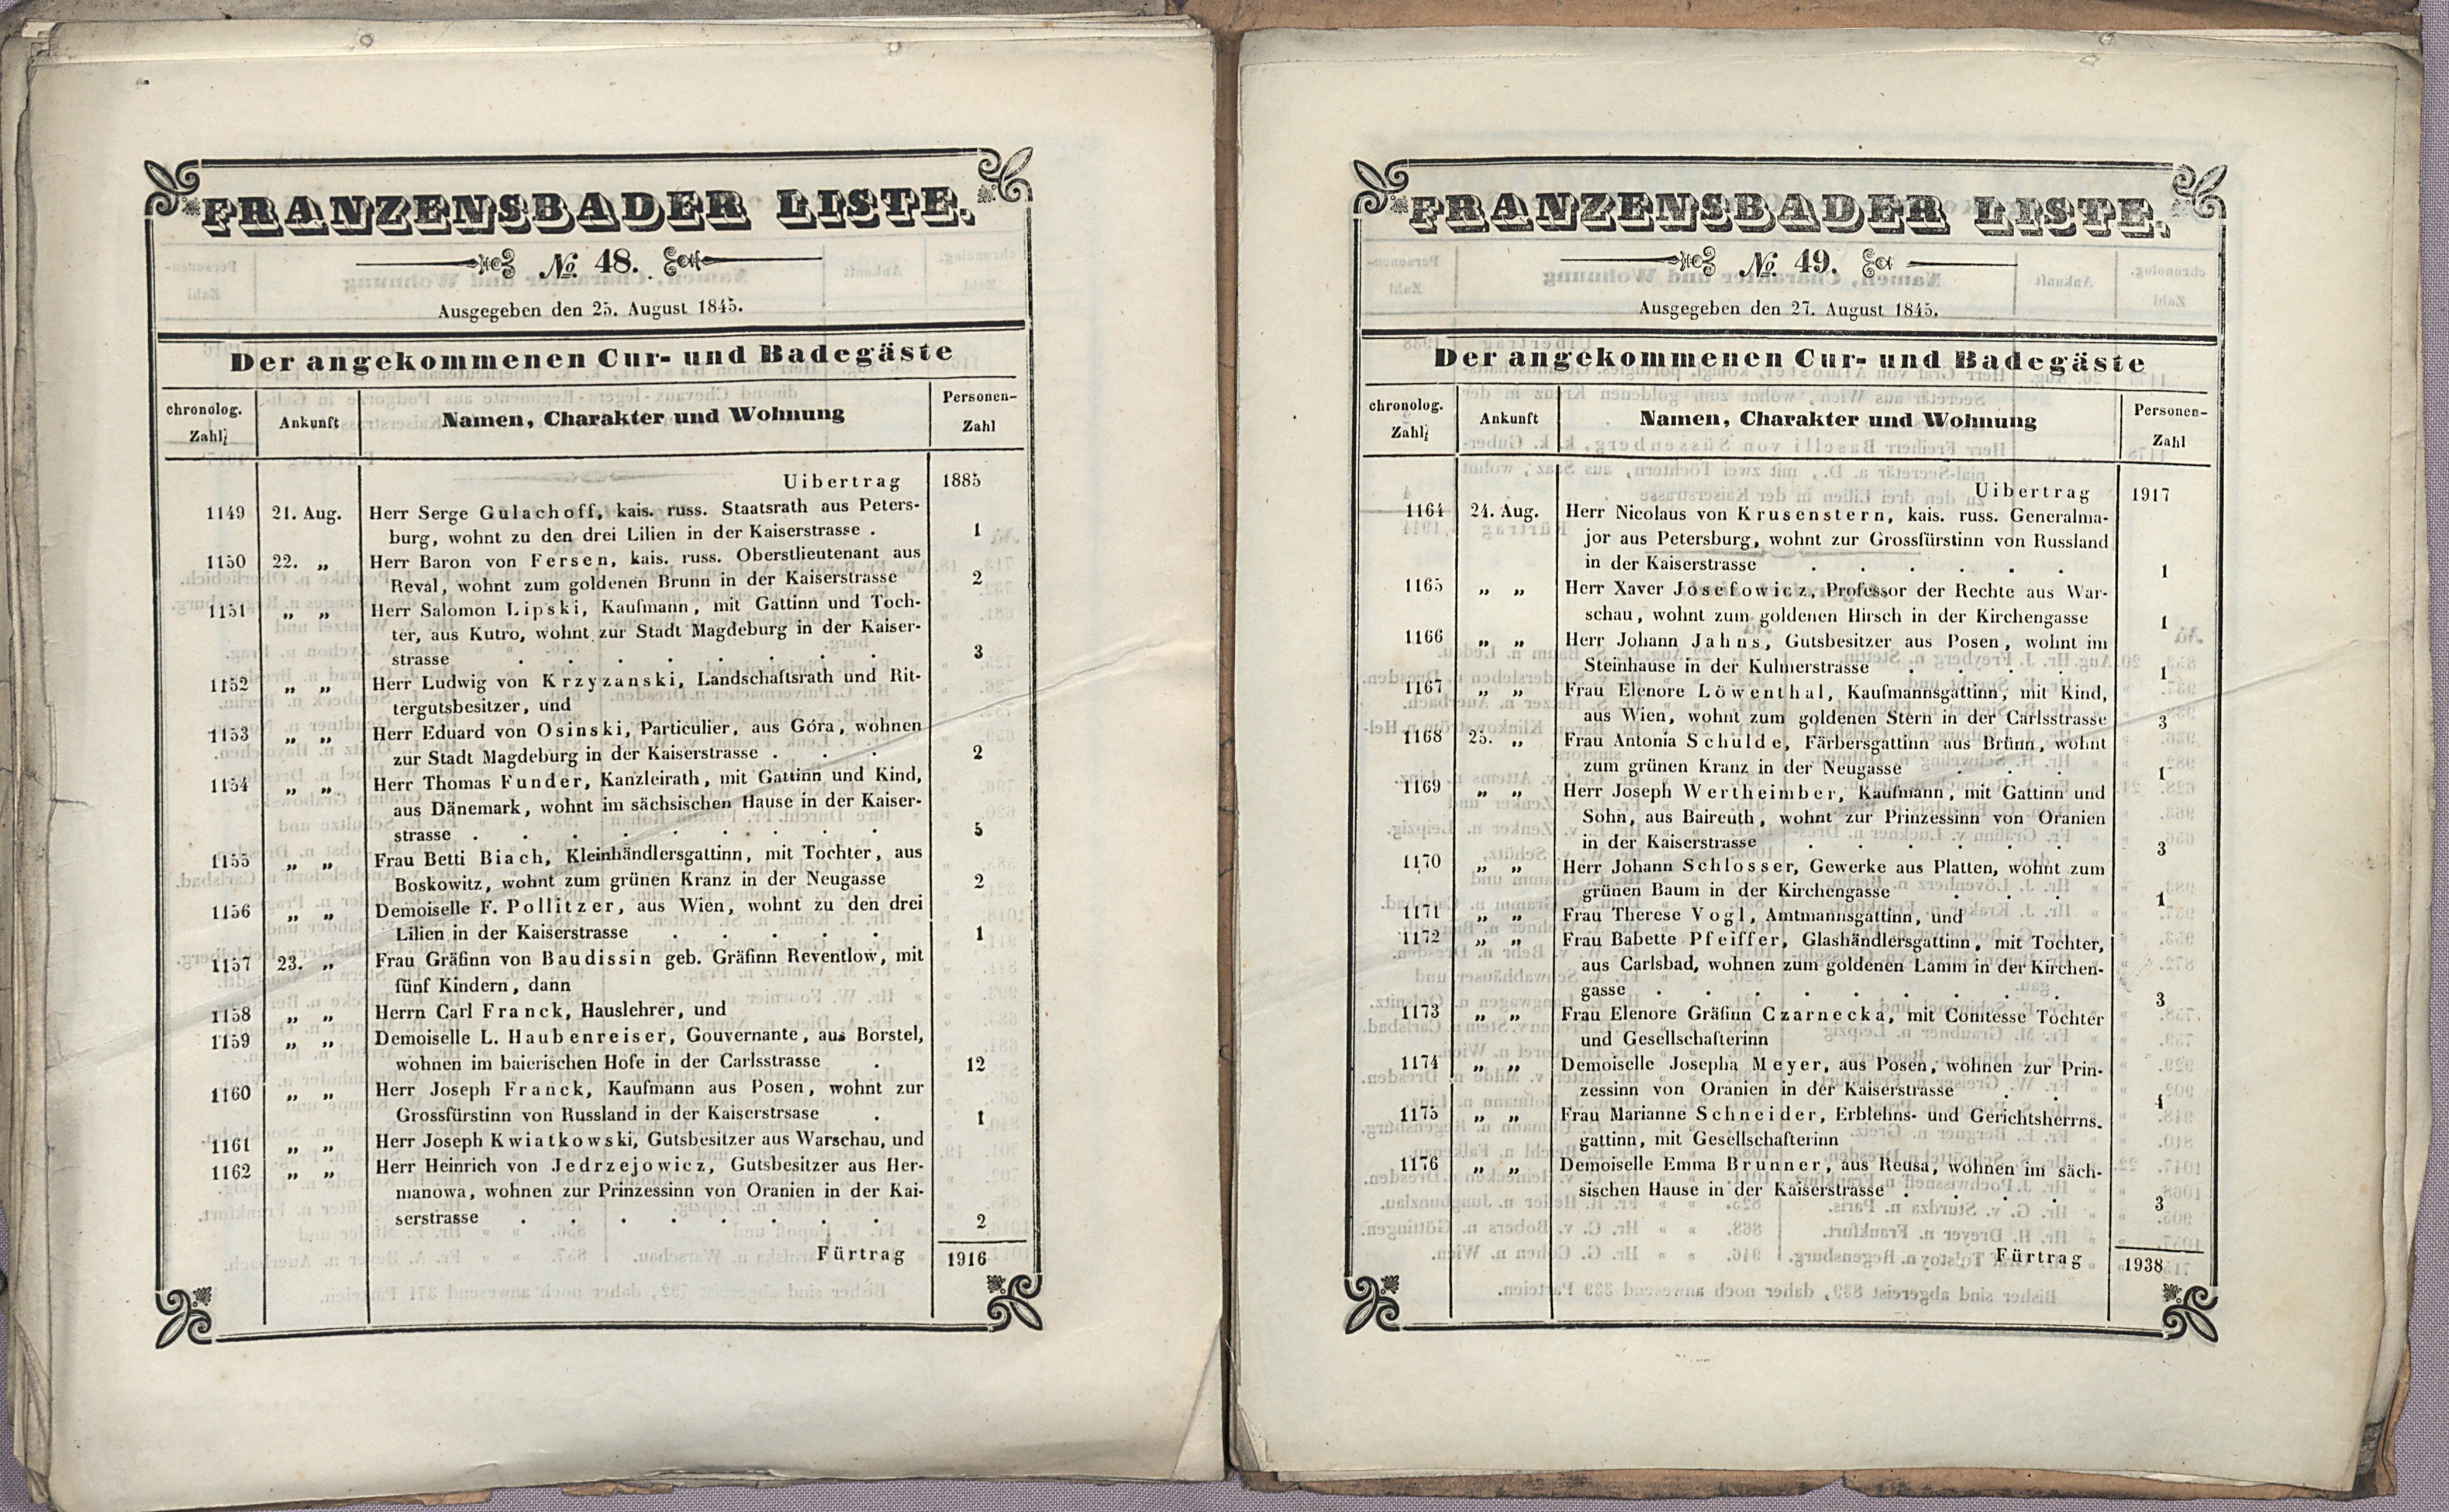 FRANZENSBADER LISTE.
No. 48.
Ausgegeben den 25. August 1845.
Der angekommenen Cur- und Badegäste
chronolog. Zahl
Ankunft
Namen, Charakter und Wohnung
Personen-Zahl
Uibertrag 1885
1149 21. Aug. Herr Serge Gulachoff, kais. russ. Staatsrath aus Peters-
burg, wohnt zu den drei Lilien in der Kaiserstrasse . 1
1150 22. „ Herr Baron von Fersen, kais. russ. Oberstlieutenant aus
Reval, wohnt zum goldenen Brunn in der Kaiserstrasse 2
1151 „ „ Herr Salomon Lipski, Kaufmann, mit Gattinn und Toch-
ter, aus Kutro, wohnt zur Stadt Magdeburg in der Kaiser-
strasse . . . . . . . . 3
1152 „ „ Herr Ludwig von Krzyzanski, Landschaftsrath und Rit-
tergutsbesitzer, und
1153 „ „ Herr Eduard von Osinski, Particulier, aus Góra, wohnen
zur Stadt Magdeburg in der Kaiserstrasse . . . 2
1154 „ „ Herr Thomas Funder, Kanzleirath, mit Gattinn und Kind,
aus Dänemark, wohnt im sächsischen Hause in der Kaiser-
strasse . . . . . . . . . 5
1155 „ „ Frau Betti Biach, Kleinhändlersgattinn, mit Tochter, aus
Boskowitz, wohnt zum grünen Kranz in der Neugasse 2
1156 „ „ Demoiselle F. Pollitzer, aus Wien, wohnt zu den drei
Lilien in der Kaiserstrasse . . . . . 1
1157 23. „ Frau Gräfinn von Baudissin geb. Gräfinn Reventlow, mit
fünf Kindern, dann
1158 „ „ Herrn Carl Franck, Hauslehrer, und
1159 „ „ Demoiselle L. Haubenreiser, Gouvernante, aus Borstel,
wohnen im baierischen Hofe in der Carlsstrasse . 12
1160 „ „ Herr Joseph Franck, Kaufmann aus Posen, wohnt zur
Grossfürstinn von Russland in der Kaiserstrsase . 1
1161 „ „ Herr Joseph Kwiatkowski, Gutsbesitzer aus Warschau, und
1162 „ „ Herr Heinrich von Jedrzejowicz, Gutsbesitzer aus Her-
manowa, wohnen zur Prinzessinn von Oranien in der Kai-
serstrasse . . . . . . . . 2
Fürtrag 1916
FRANZENSBADER LISTE.
No. 49.
Ausgegeben den 27. August 1845.
Der angekommenen Cur- und Badegäste
chronolog. Zahl
Ankunft
Namen, Charakter und Wohnung
Personen-Zahl
Uibertrag 1917
1164 24. Aug. Herr Nicolaus von Krusenstern, kais. russ. Generalma-
jor aus Petersburg, wohnt zur Grossfürstinn von Russland
in der Kaiserstrasse . . . . . . 1
1165 „ „ Herr Xaver Josefowicz, Professor der Rechte aus War-
schau, wohnt zum goldenen Hirsch in der Kirchengasse 1
1166 „ „ Herr Johann Jahns, Gutsbesitzer aus Posen, wohnt im
Steinhause in der Kulmerstrasse . . . . 1
1167 „ „ Frau Elenore Löwenthal, Kaufmannsgattinn, mit Kind,
aus Wien, wohnt zum goldenen Stern in der Carlsstrasse 3
1168 25. „ Frau Antonia Schulde, Färbersgattinn aus Brünn, wohnt
zum grünen Kranz in der Neugasse . . . 1
1169 „ „ Herr Joseph Wertheimber, Kaufmann, mit Gattinn und
Sohn, aus Baireuth, wohnt zur Prinzessinn von Oranien
in der Kaiserstrasse . . . . . . 3
1170 „ „ Herr Johann Schlosser, Gewerke aus Platten, wohnt zum
grünen Baum in der Kirchengasse . . . 1
1171 „ „ Frau Therese Vogl, Amtmannsgattinn, und
1172 „ „ Frau Babette Pfeiffer, Glashändlersgattinn, mit Tochter,
aus Carlsbad, wohnen zum goldenen Lamm in der Kirchen-
gasse . . . . . . . . . 3
1173 „ „ Frau Elenore Gräfinn Czarnecka, mit Comtesse Tochter
und Gesellschafterinn
1174 „ „ Demoiselle Josepha Meyer, aus Posen, wohnen zur Prin-
zessinn von Oranien in der Kaiserstrasse . . 4
1175 „ „ Frau Marianne Schneider, Erblehns- und Gerichtsherrns-
gattinn, mit Gesellschafterinn
1176 „ „ Demoiselle Emma Brunner, aus Reusa, wohnen im säch-
sischen Hause in der Kaiserstrasse . . . . 3
Fürtrag 1938